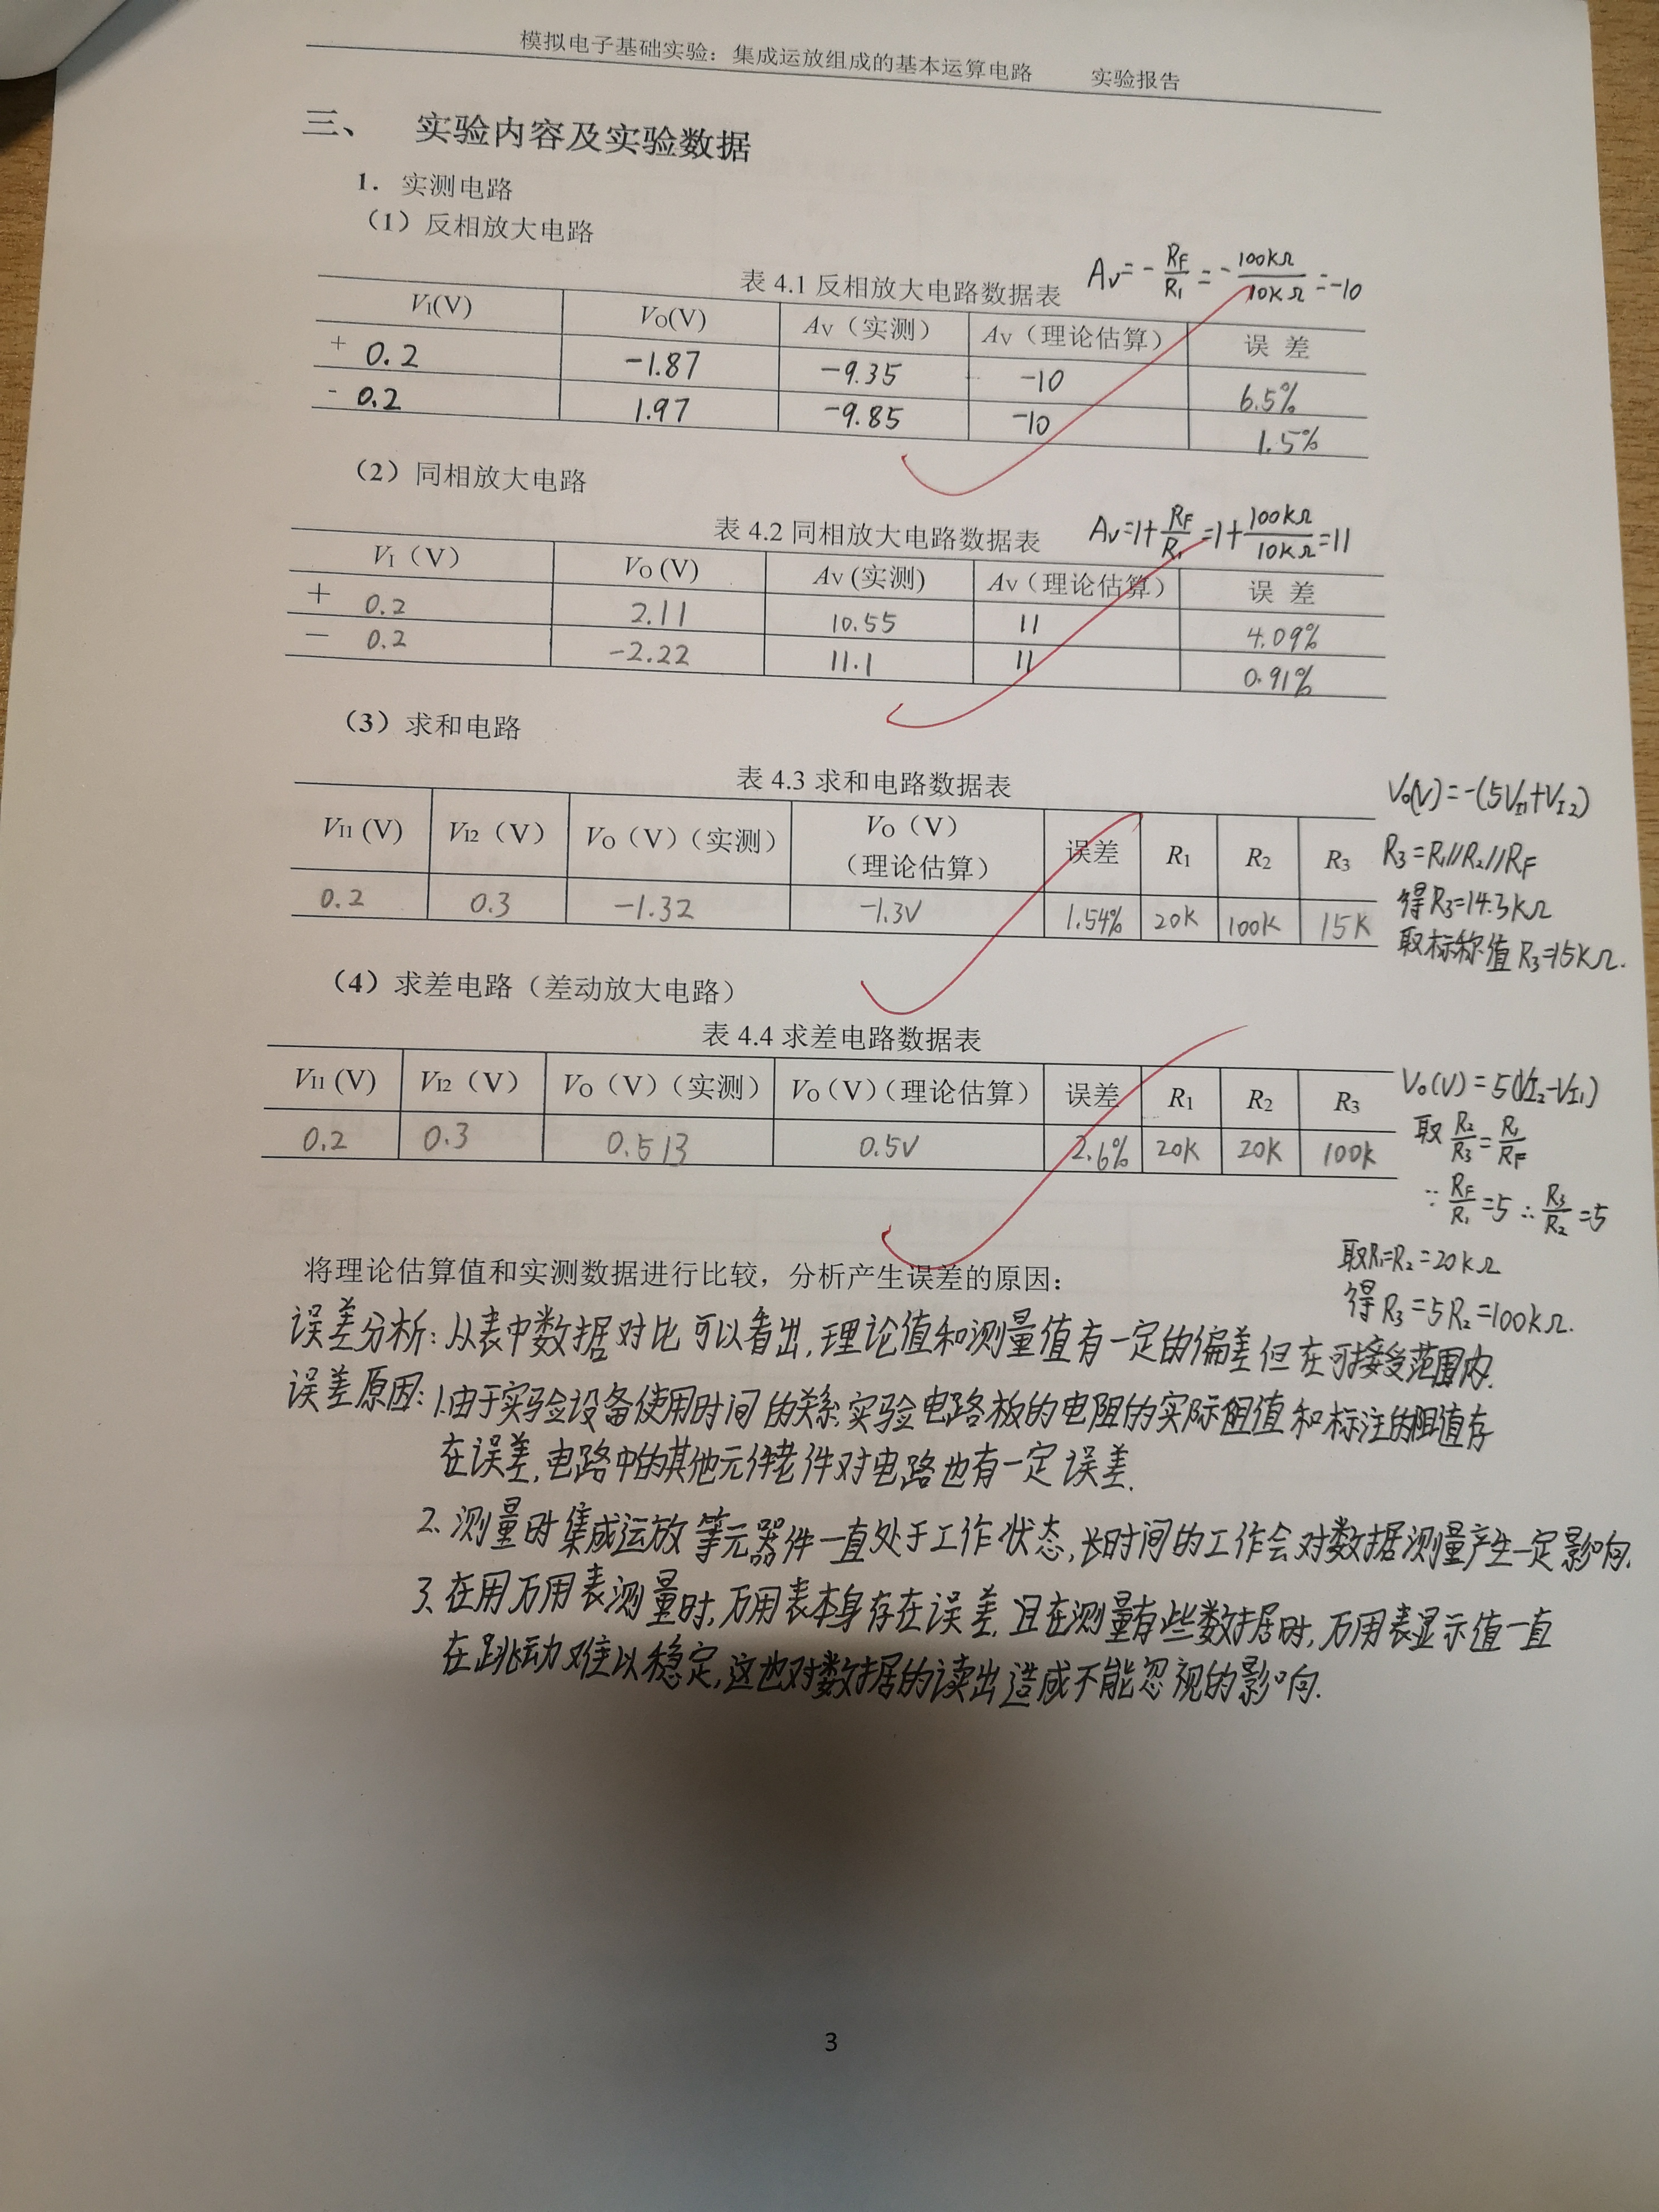 模拟电子基础实验：集成运放组成的基本运算电路 实验报告
三、 实验内容及实验数据
1．实测电路
（1）反相放大电路
表 4.1 反相放大电路数据表 Av=-RF/R1=-100kΩ/10kΩ=-10
VI(V) VO(V) AV（实测） AV（理论估算） 误 差
+ 0.2 -1.87 -9.35 -10 6.5%
- 0.2 1.97 -9.85 -10 1.5%
（2）同相放大电路
表 4.2 同相放大电路数据表 Av=1+RF/R1=1+100kΩ/10kΩ=11
VI（V） VO (V) AV (实测) AV（理论估算） 误 差
+ 0.2 2.11 10.55 11 4.09%
- 0.2 -2.22 11.1 11 0.91%
（3）求和电路
表 4.3 求和电路数据表
VI1 (V) VI2（V） VO（V）（实测） VO（V）（理论估算） 误差 R1 R2 R3
0.2 0.3 -1.32 -1.3V 1.54% 20K 100K 15K
Vo(V)=-(5VI1+VI2)
R3=R1//R2//RF
得R3=14.3kΩ
取标称值R3=15kΩ.
（4）求差电路（差动放大电路）
表 4.4 求差电路数据表
VI1 (V) VI2（V） VO（V）（实测） VO（V）（理论估算） 误差 R1 R2 R3
0.2 0.3 0.513 0.5V 2.6% 20K 20K 100K
Vo(V)=5(VI2-VI1)
取 R2/R3=R1/RF
∵RF/R1=5 ∴R3/R2=5
取R1=R2=20kΩ
得R3=5R2=100kΩ.
将理论估算值和实测数据进行比较，分析产生误差的原因：
误差分析：从表中数据对比可以看出，理论值和测量值有一定的偏差但在可接受范围内.
误差原因：1.由于实验设备使用时间的关系，实验电路板的电阻的实际阻值和标注的阻值存
在误差，电路中的其他元件老件对电路也有一定误差.
2. 测量时集成运放等元器件一直处于工作状态，长时间的工作会对数据测量产生一定影响.
3. 在用万用表测量时，万用表本身存在误差，且在测量有些数据时，万用表显示值一直
在跳动难以稳定，这也对数据的读出造成不能忽视的影响.
3